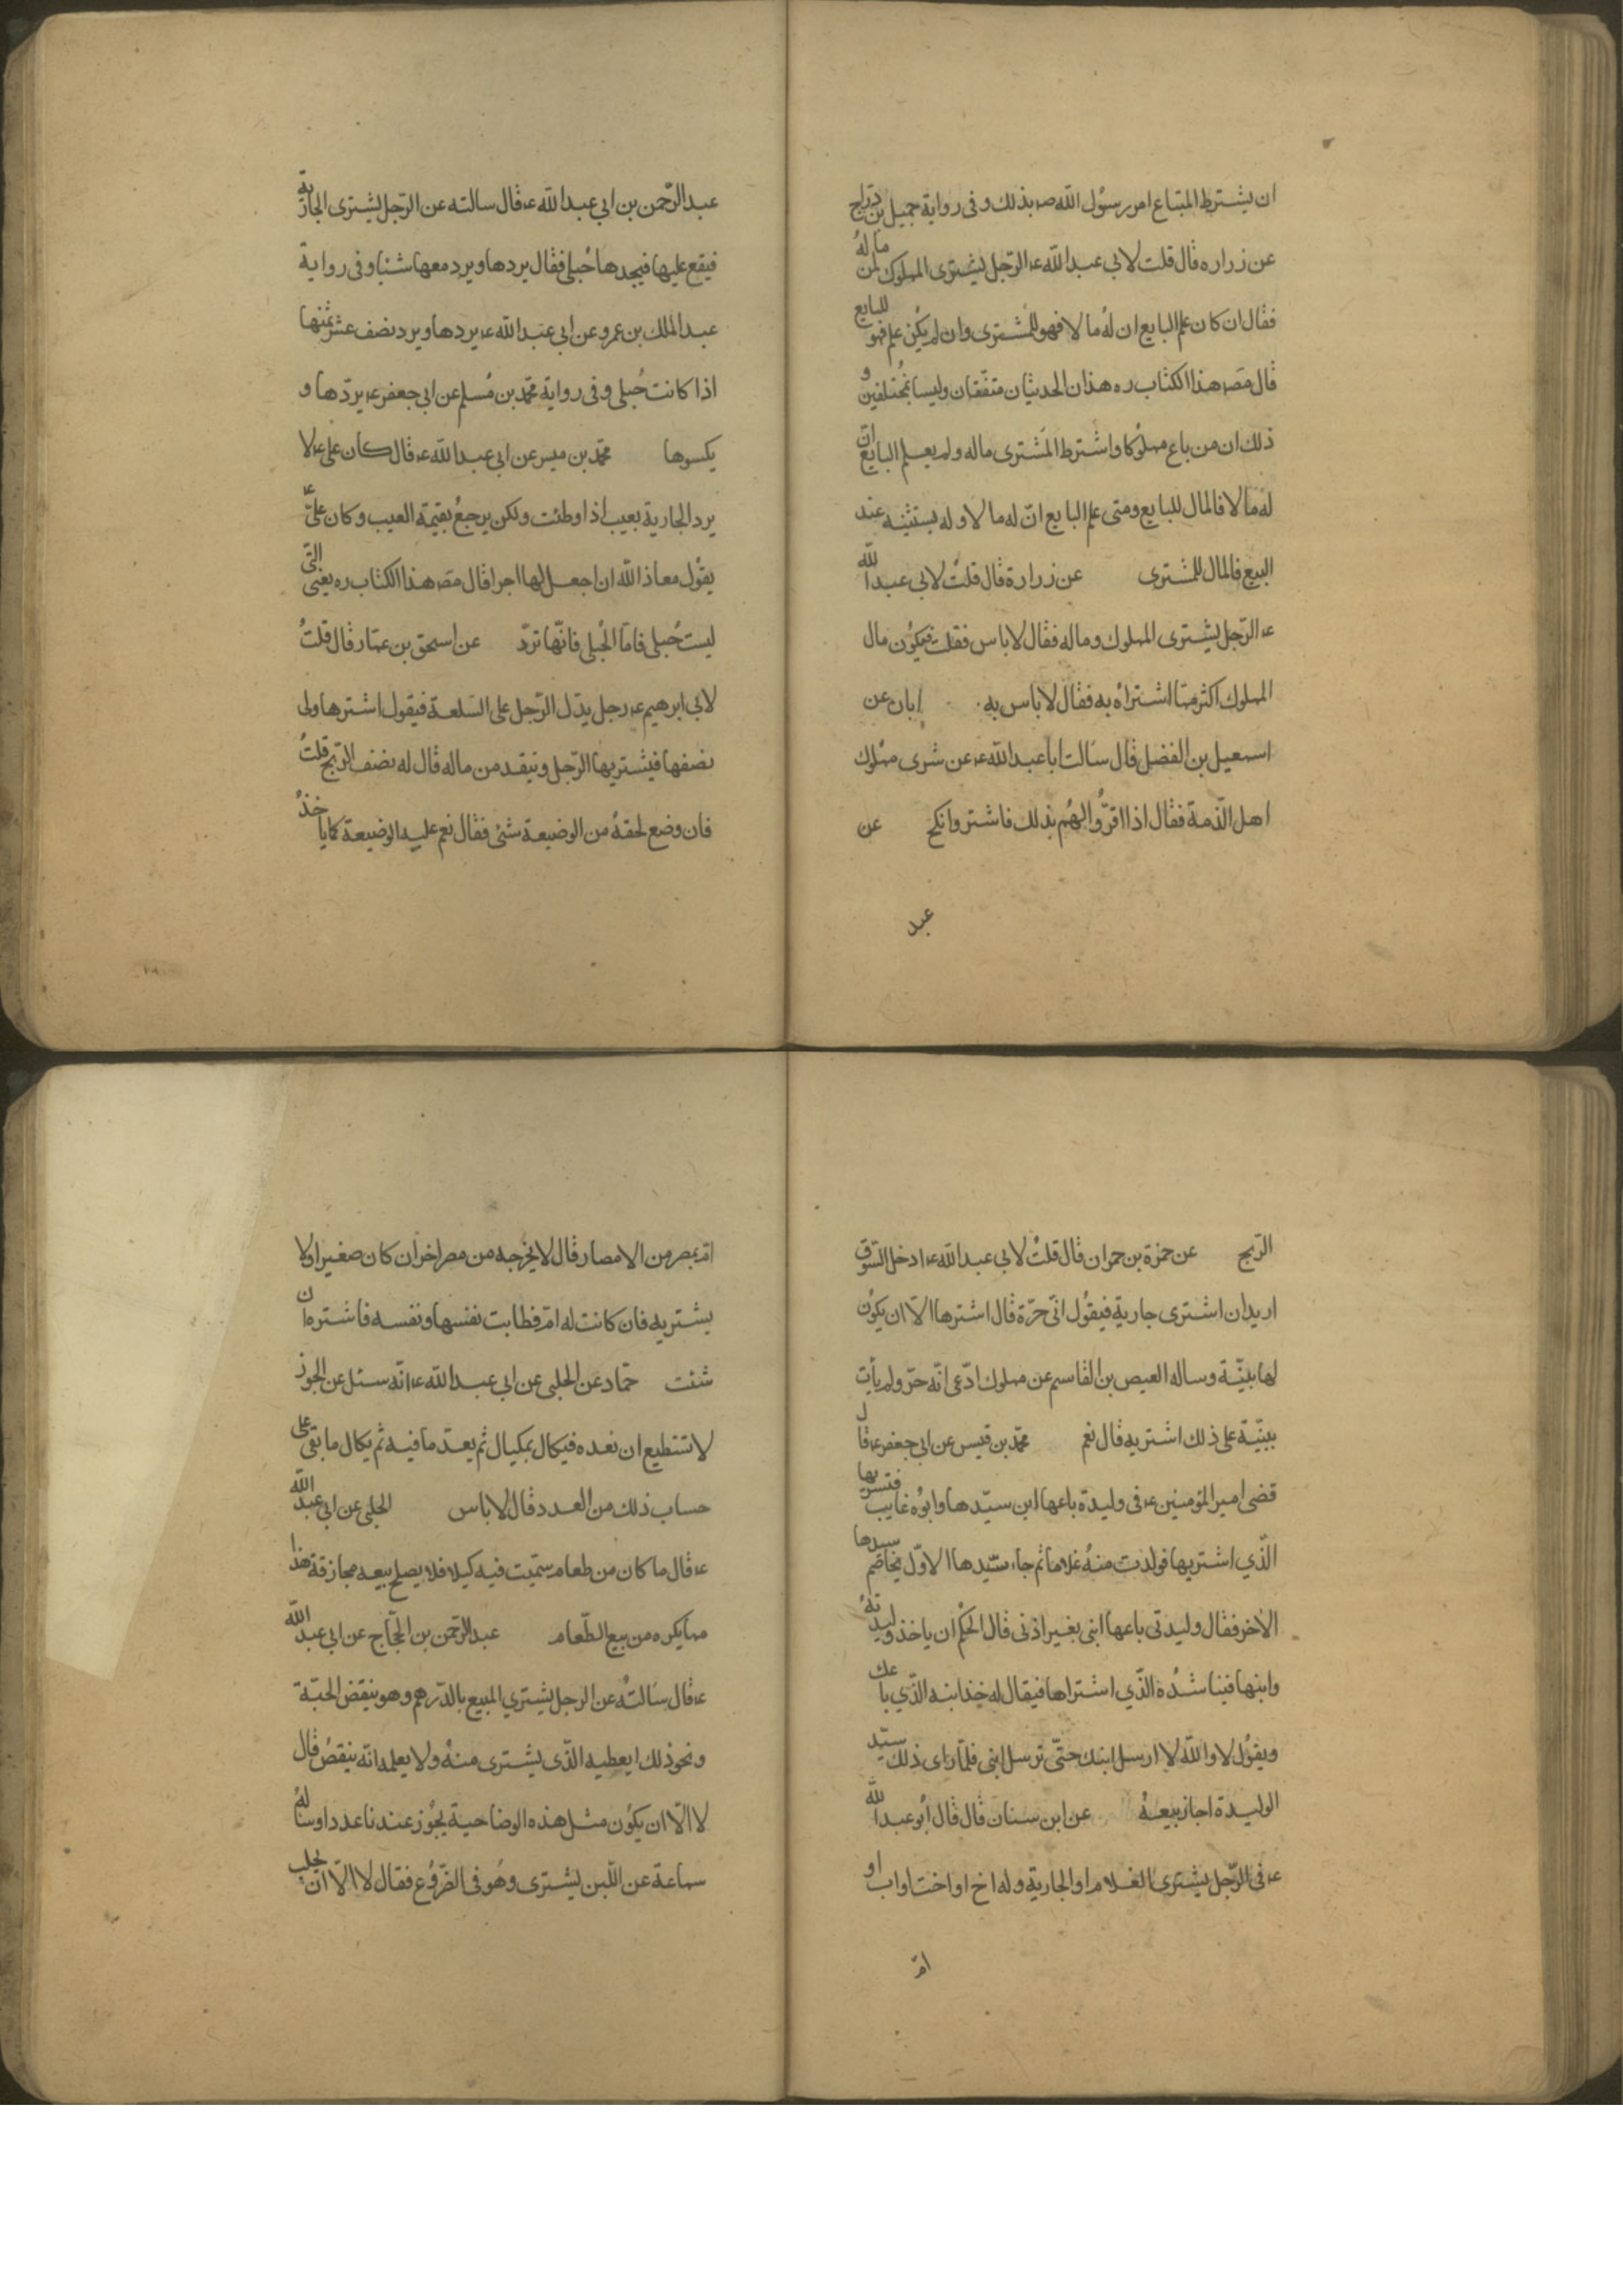 ان يشترط المبتاع امر رسول الله صه بذلك وفى رواية جميل بن درّاج
عن زراره قال قلت لابي عبدالله عه الرّجل يشترى المملوك لمن ماله
فقال ان كان علم البايع ان له مالا فهو للمشترى وان لم يكن علم فهو للبايع
قال مصه هذا الكتاب ره هذان الحديثان متفقان وليسا بمختلفين و
ذلك ان من باع مملوكا واشترط المشترى ماله ولم يعلم البايع انّ
له مالا فالمال للبايع ومتى علم البايع انّ له مالا ولم يستثنه عند
البيع فالمال للمشترى عن زرارة قال قلت لابي عبدالله
عه الرّجل يشترى المملوك وماله فقال لا باس فقلت فيكون مال
المملوك اكثر ممّا اشتراه به فقال لا باس به ابان عن
اسمعيل بن الفضل قال سالت ابا عبدالله عه عن شرى مملوك
اهل الذّمة فقال اذا اقرّوا لهم بذلك فاشتر وانكح عن
عبد
عبدالرّحمن بن ابي عبدالله عه قال سالته عن الرّجل يشترى الجارية
فيقع عليها فيجدها حبلى فقال يردها ويرد معها شيئا وفى رواية
عبدالملك بن عمرو عن ابي عبدالله عه يردها ويرد نصف عشر ثمنها
اذا كانت حبلى وفى رواية محمّد بن مسلم عن ابي جعفر عه يردّها و
يكسوها محمّد بن ميسر عن ابي عبدالله عه قال كان على عه لا
يرد الجارية بعيب اذا وطئت ولكن يرجع بقيمة العيب وكان علىّ عه
يقول معاذ الله ان اجعل لها اجرا قال مصه هذا الكتاب ره يعنى التى
ليست حبلى فامّا الحبلى فانّها تردّ عن اسحق بن عمّار قال قلت
لابي ابرهيم عه رجل يدّل الرّجل على السّلعة فيقول اشترها ولى
نصفها فيشتريها الرّجل وينقد من ماله قال له نصف الرّبح قلت
فان وضع لحقه من الوضيعة شئ فقال نعم عليه الوضيعة كما ياخذ
الرّبح عن حمزة بن حمران قال قلت لابي عبدالله عه ادخل السّوق
اريد ان اشترى جارية فيقول انّى حرّة قال اشترها الّا ان يكون
لها بيّنة وساله العيص بن القاسم عن مملوك ادّعى انّه حرّ ولم يأت
ببيّنة على ذلك اشتريه قال نعم محمّد بن قيس عن ابي جعفر عه قال
قضى امير المؤمنين عه فى وليدة باعها ابن سيّدها وابوه غايب فتسرّيها
الّذي اشتريها فولدت منه غلاما ثم جاء سيّدها الاوّل يخاصم سيدها
الآخر فقال وليدتى باعها ابنى بغير اذنى قال الحكم ان ياخذ وليدته
وابنها فيناشده الّذي اشتراها فيقال له خذ ابنه الّذي باعك
ويقول لا والله لا ارسل ابنك حتّى ترسل ابنى فلمّا راى ذلك سيّد
الوليدة اجاز بيعه عن ابن سنان قال قال أبو عبدالله
عه فى الرّجل يشترى الغلام او الجارية وله اخ او اخت او اب او
امّ
امّ بمصر من الامصار قال لا يخرجه من مصر اخر ان كان صغيرا ولا
يشتريه فان كانت له امّ فطابت نفسها ونفسه فاشتره ان
شئت حمّاد عن الحلبى عن ابي عبدالله عه انّه سئل عن الجوز
لا تستطيع ان نعده فيكال بمكيال ثم يعدّ ما فيه ثم يكال ما بقى على
حساب ذلك من العدد قال لا باس الحلبى عن ابي عبدالله
عه قال ما كان من طعام سمّيت فيه كيلا فلا يصلح بيعه مجازفة هذا
مما يكره من بيع الطّعام عبدالرّحمن بن الحجّاج عن ابي عبدالله
عه قال سالته عن الرجل يشتري المبيع بالدّرهم وهو ينقض الحبّة
ونحو ذلك ايعطيه الذّى يشترى منه ولا يعلمه انّه ينقص قال
لا الّا ان يكون مثل هذه الوضاحية يجوز عندنا عددا وساله
سماعة عن اللّبن يشترى وهو فى الضّروع فقال لا الّا ان يحلب